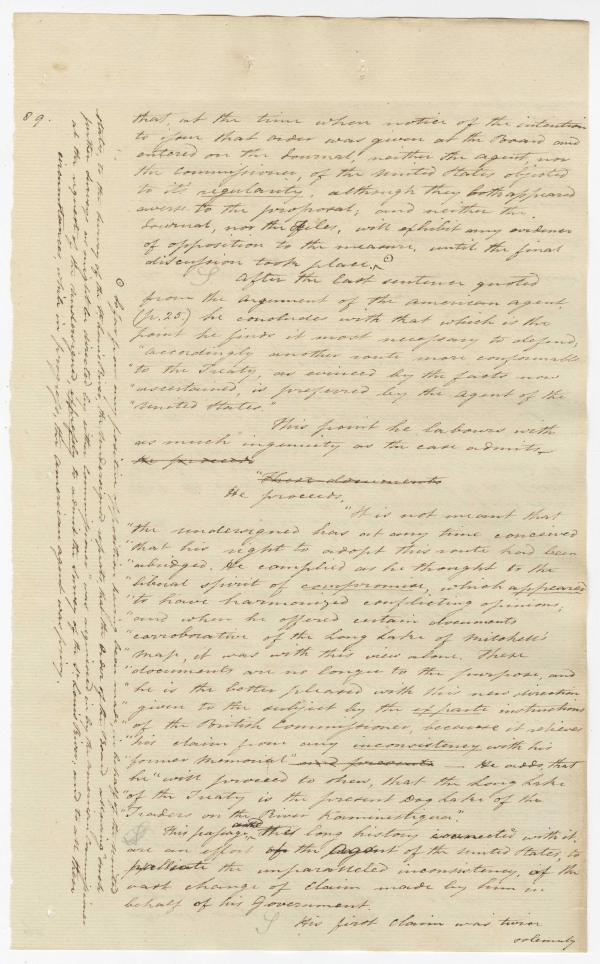 89.
that, at the time when notice of the intention
to issue that order was given at the Board and
entered on the Journal, neither the agent, nor
the Commissioner, of the United States objected
to its regularity, although they both appeared
averse to the proposal; and neither the
Journal, nor the files, will exhibit any evidence
of opposition to the measure, until the final
discussion took place.
After the last sentence quoted
from the argument of the American agent
(p. 25.) he concludes with that which is the
point he finds it most necessary to defend,
"accordingly another route more conformable
"to the Treaty, as evinced by the facts now
"ascertained, is preferred by the agent of the
"United States."
This point he labours with
as much ingenuity as the case admits.
He proceeds
"These documents
He proceeds,
"It is not meant that
"the undersigned has at any time conceived
"that his right to adopt this route had been
"abridged. He complied as he thought to the
"liberal spirit of compromise, which appeared
"to have harmonized conflicting opinions;
"and when he offered certain documents
"corroborative of the Long Lake of Mitchell's
"map, it was with this view alone. These
"documents are no longer to the purpose, and
"he is the better pleased with this new direction
"given to the subject by the ex parte instructions
"of the British Commissioner, because it relieves
"his claim from any inconsistency with his
"former Memorial" and presents — He adds, that
he "will proceed to shew, that the Long Lake
"of the Treaty is the present Dog Lake of the
"Traders on the River Kamenistegua".
This passage, and the long history connected with it
are an effort of the agent of the United States, to
palliate the unparalleled inconsistency, of the
vast change of claim made by him in
behalf of his Government.
His first claim was twice
solemnly
So far from any positive opposition having been made in behalf of the United
States, to the survey of the St. Louis River, the undersigned asserts that the order of the Board requiring "such
further surveys as might be directed by either Commissioner" was acquiesced in by the American Commissioner
at the request of the undersigned, expressly to admit the survey of the St. Louis River, and to all these
circumstances, while in progress, the American agent was privy.